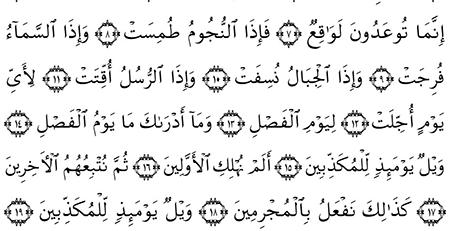 إِنَّمَا تُوعَدُونَ لَوَٰقِعٌ ﴿٧﴾ فَإِذَا ٱلنُّجُومُ طُمِسَتْ ﴿٨﴾ وَإِذَا ٱلسَّمَآءُ
فُرِجَتْ ﴿٩﴾ وَإِذَا ٱلْجِبَالُ نُسِفَتْ ﴿١٠﴾ وَإِذَا ٱلرُّسُلُ أُقِّتَتْ ﴿١١﴾ لِأَىِّ
يَوْمٍ أُجِّلَتْ ﴿١٢﴾ لِيَوْمِ ٱلْفَصْلِ ﴿١٣﴾ وَمَآ أَدْرَىٰكَ مَا يَوْمُ ٱلْفَصْلِ ﴿١٤﴾
وَيْلٌ يَوْمَئِذٍ لِّلْمُكَذِّبِينَ ﴿١٥﴾ أَلَمْ نُهْلِكِ ٱلْأَوَّلِينَ ﴿١٦﴾ ثُمَّ نُتْبِعُهُمُ ٱلْـَٔاخِرِينَ
﴿١٧﴾ كَذَٰلِكَ نَفْعَلُ بِٱلْمُجْرِمِينَ ﴿١٨﴾ وَيْلٌ يَوْمَئِذٍ لِّلْمُكَذِّبِينَ ﴿١٩﴾